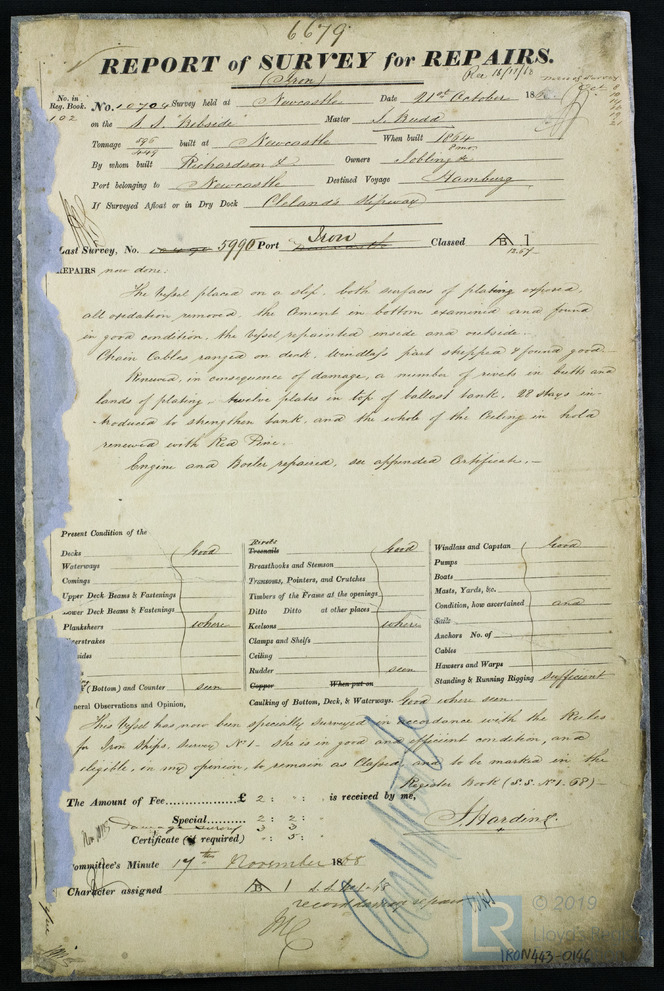 6679
REPORT of SURVEY for REPAIRS.
(Iron)
Rec 16/11/68
No. in Reg. Book
102
No. 10704 Survey held at Newcastle Date 21st October 18
on the S.S. "Webside" Master J. Rudd
Tonnage 595 / 449 built at Newcastle When built 1864 8mo
By whom built Richardson & Owners Jobling &c
Port belonging to Newcastle Destined Voyage Hamburg
If Surveyed Afloat or in Dry Dock Clelands Slipway
Last Survey, No. 5990 Port Iron Classed A B 1
12.67
REPAIRS now done:
The Vessel placed on a slip. both surfaces of plating exposed,
all oxidation removed. the Cement in bottom examined and found
in good condition, the Vessel repainted inside and outside.
Chain Cables ranged on deck. Windlass part stripped & found good
Renewed, in consequence of damage, a number of rivets in butts and
lands of plating - twelve plates in top of ballast tank. 28 stays in-
-troduced to strengthen tank, and the whole of the Ceiling in hold
renewed with Red Pine.
Engine and Boiler repaired, see appended Certificate.-
Present Condition of the
Decks Good
Waterways
Comings
Upper Deck Beams & Fastenings
Lower Deck Beams & Fastenings
Planksheers where
erstrakes
sides
(Bottom) and Counter seen
Rivets
Treenails Good
Breasthooks and Stemson
Transoms, Pointers, and Crutches
Timbers of the Frame at the openings
Ditto Ditto at other places
Keelsons where
Clamps and Shelfs
Ceiling
Rudder seen
Copper When put on
Caulking of Bottom, Deck, & Waterways. Good where seen
Windlass and Capstan Good
Pumps
Boats
Masts, Yards, &c.
Condition, how ascertained and
Sails
Anchors No. of
Cables
Hawsers and Warps
Standing & Running Rigging sufficient
neral Observations and Opinion,
This Vessel has now been specially surveyed in accordance with the Rules
for Iron Ships. Survey No 1 - She is in good and efficient condition, and
eligible, in my opinion, to remain as Classed, and to be marked in the
Register Book (S.S. No 1. 68) -
The Amount of Fee £ 2 : : is received by me,
Special 2 : 2 :
Damage survey 3 3
Certificate (if required) : 5 :
J. Hardins
ommittee's Minute 17th November 1868
Character assigned A B 1
record damage repairs
© 2019
LR
Lloyd's Register
IRON443-0146